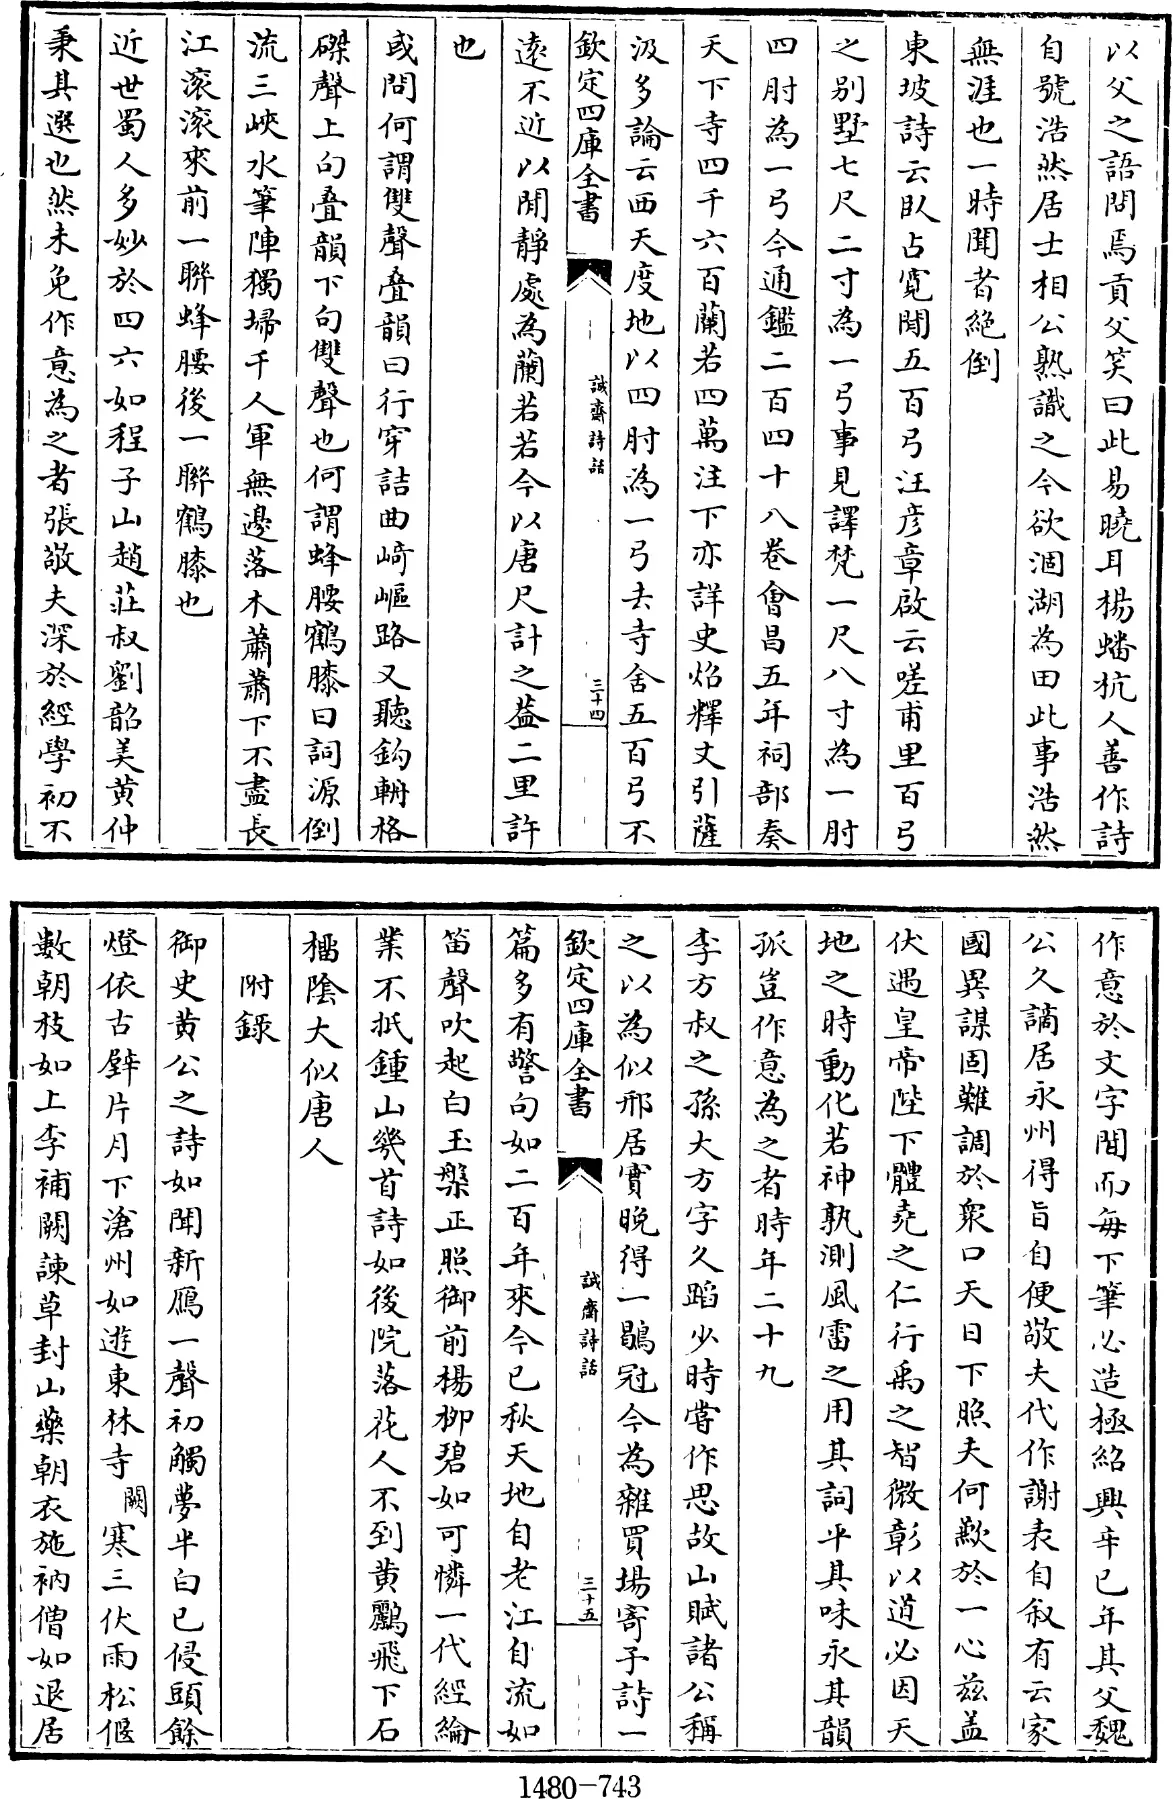 以父之語問焉貢父笑曰此易曉耳楊蟠杭人善作詩
自號浩然居士相公熟識之今欲涸湖為田此事浩然
無涯也一時聞者絶倒
東坡詩云臥占寛閒五百弓汪彦章啟云嗟甫里百弓
之别墅七尺二寸為一弓事見譯梵一尺八寸為一肘
四肘為一弓今通鑑二百四十八卷會昌五年祠部奏
天下寺四千六百蘭若四萬注下亦詳史炤釋文引薩
汲多論云西天度地以四肘為一弓去寺舍五百弓不
欽定四庫全書
誠齋詩話
三十四
逺不近以閒靜處為蘭若若今以唐尺計之葢二里許
也
或問何謂雙聲叠韻曰行穿詰曲崎嶇路又聽鈎輈格
磔聲上句叠韻下句雙聲也何謂蜂腰鶴膝曰詞源倒
流三峽水筆陣獨埽千人軍無邊落木蕭蕭下不盡長
江滚滚來前一聯蜂腰後一聯鶴膝也
近世蜀人多妙於四六如程子山趙莊叔劉韶美黄仲
秉其選也然未免作意為之者張敬夫深於經學初不
作意於文字間而每下筆必造極紹興辛巳年其父魏
公久謫居永州得旨自便敬夫代作謝表自叙有云家
國異謀固難調於衆口天日下照夫何歉於一心兹盖
伏遇皇帝陛下體堯之仁行禹之智微彰以道必因天
地之時動化若神孰測風雷之用其詞平其味永其韻
孤豈作意為之者時年二十九
李方叔之孫大方字久蹈少時嘗作思故山賦諸公稱
之以為似邢居實晚得一鶡冠今為雜買場寄子詩一
欽定四庫全書
誠齋詩話
三十五
篇多有警句如二百年來今已秋天地自老江自流如
笛聲吹起白玉槃正照御前楊柳碧如可憐一代經綸
業不抵鍾山幾首詩如後院落花人不到黄鸝飛下石
榴隂大似唐人
附録
御史黄公之詩如聞新鴈一聲初觸夢半白已侵頭餘
燈依古壁片月下滄州如遊東林寺闕寒三伏雨松偃
數朝枝如上李補闕諫草封山藥朝衣施衲僧如退居
1480-743